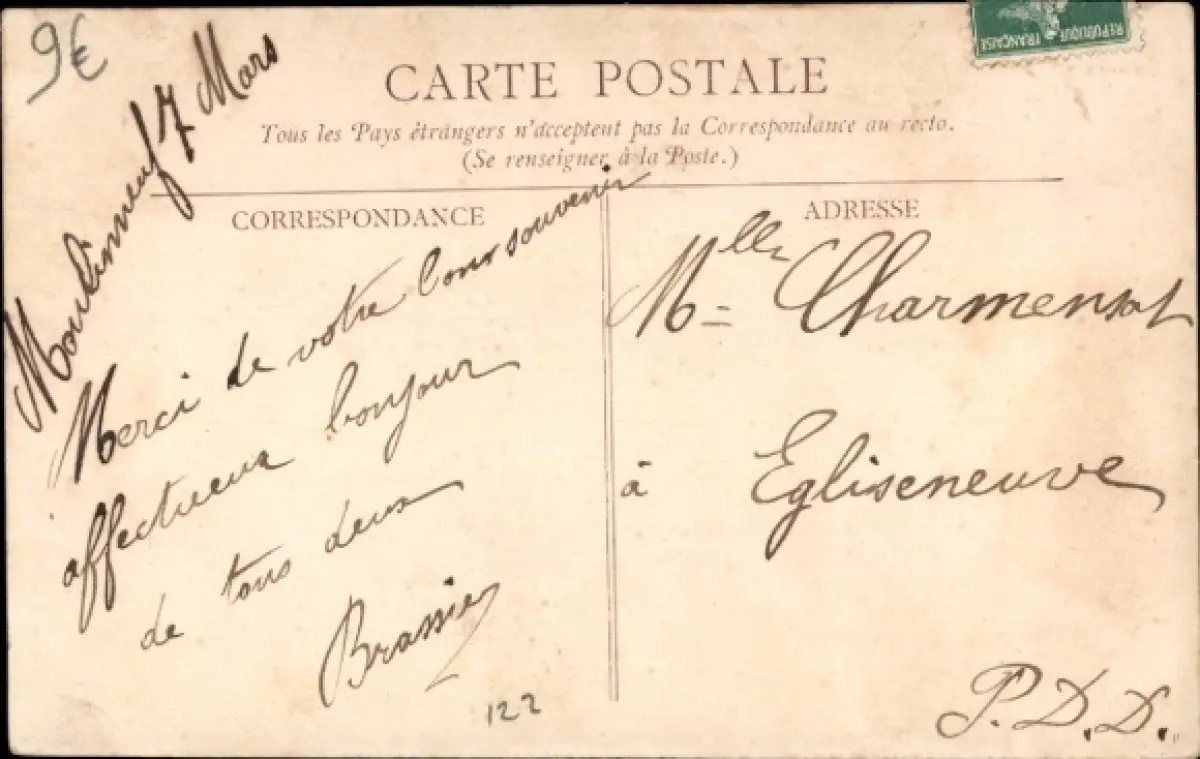 9€
REPUBLIQUE FRANÇAISE
CARTE POSTALE
Tous les Pays étrangers n'acceptent pas la Correspondance au recto.
(Se renseigner à la Poste.)
CORRESPONDANCE
Moulinneuf 7 Mars
Merci de votre bon souvenir
affectueux bonjour
de tous deux
Brassier
122
ADRESSE
Mlle Charmensat
à Egliseneuve
P.D.D.